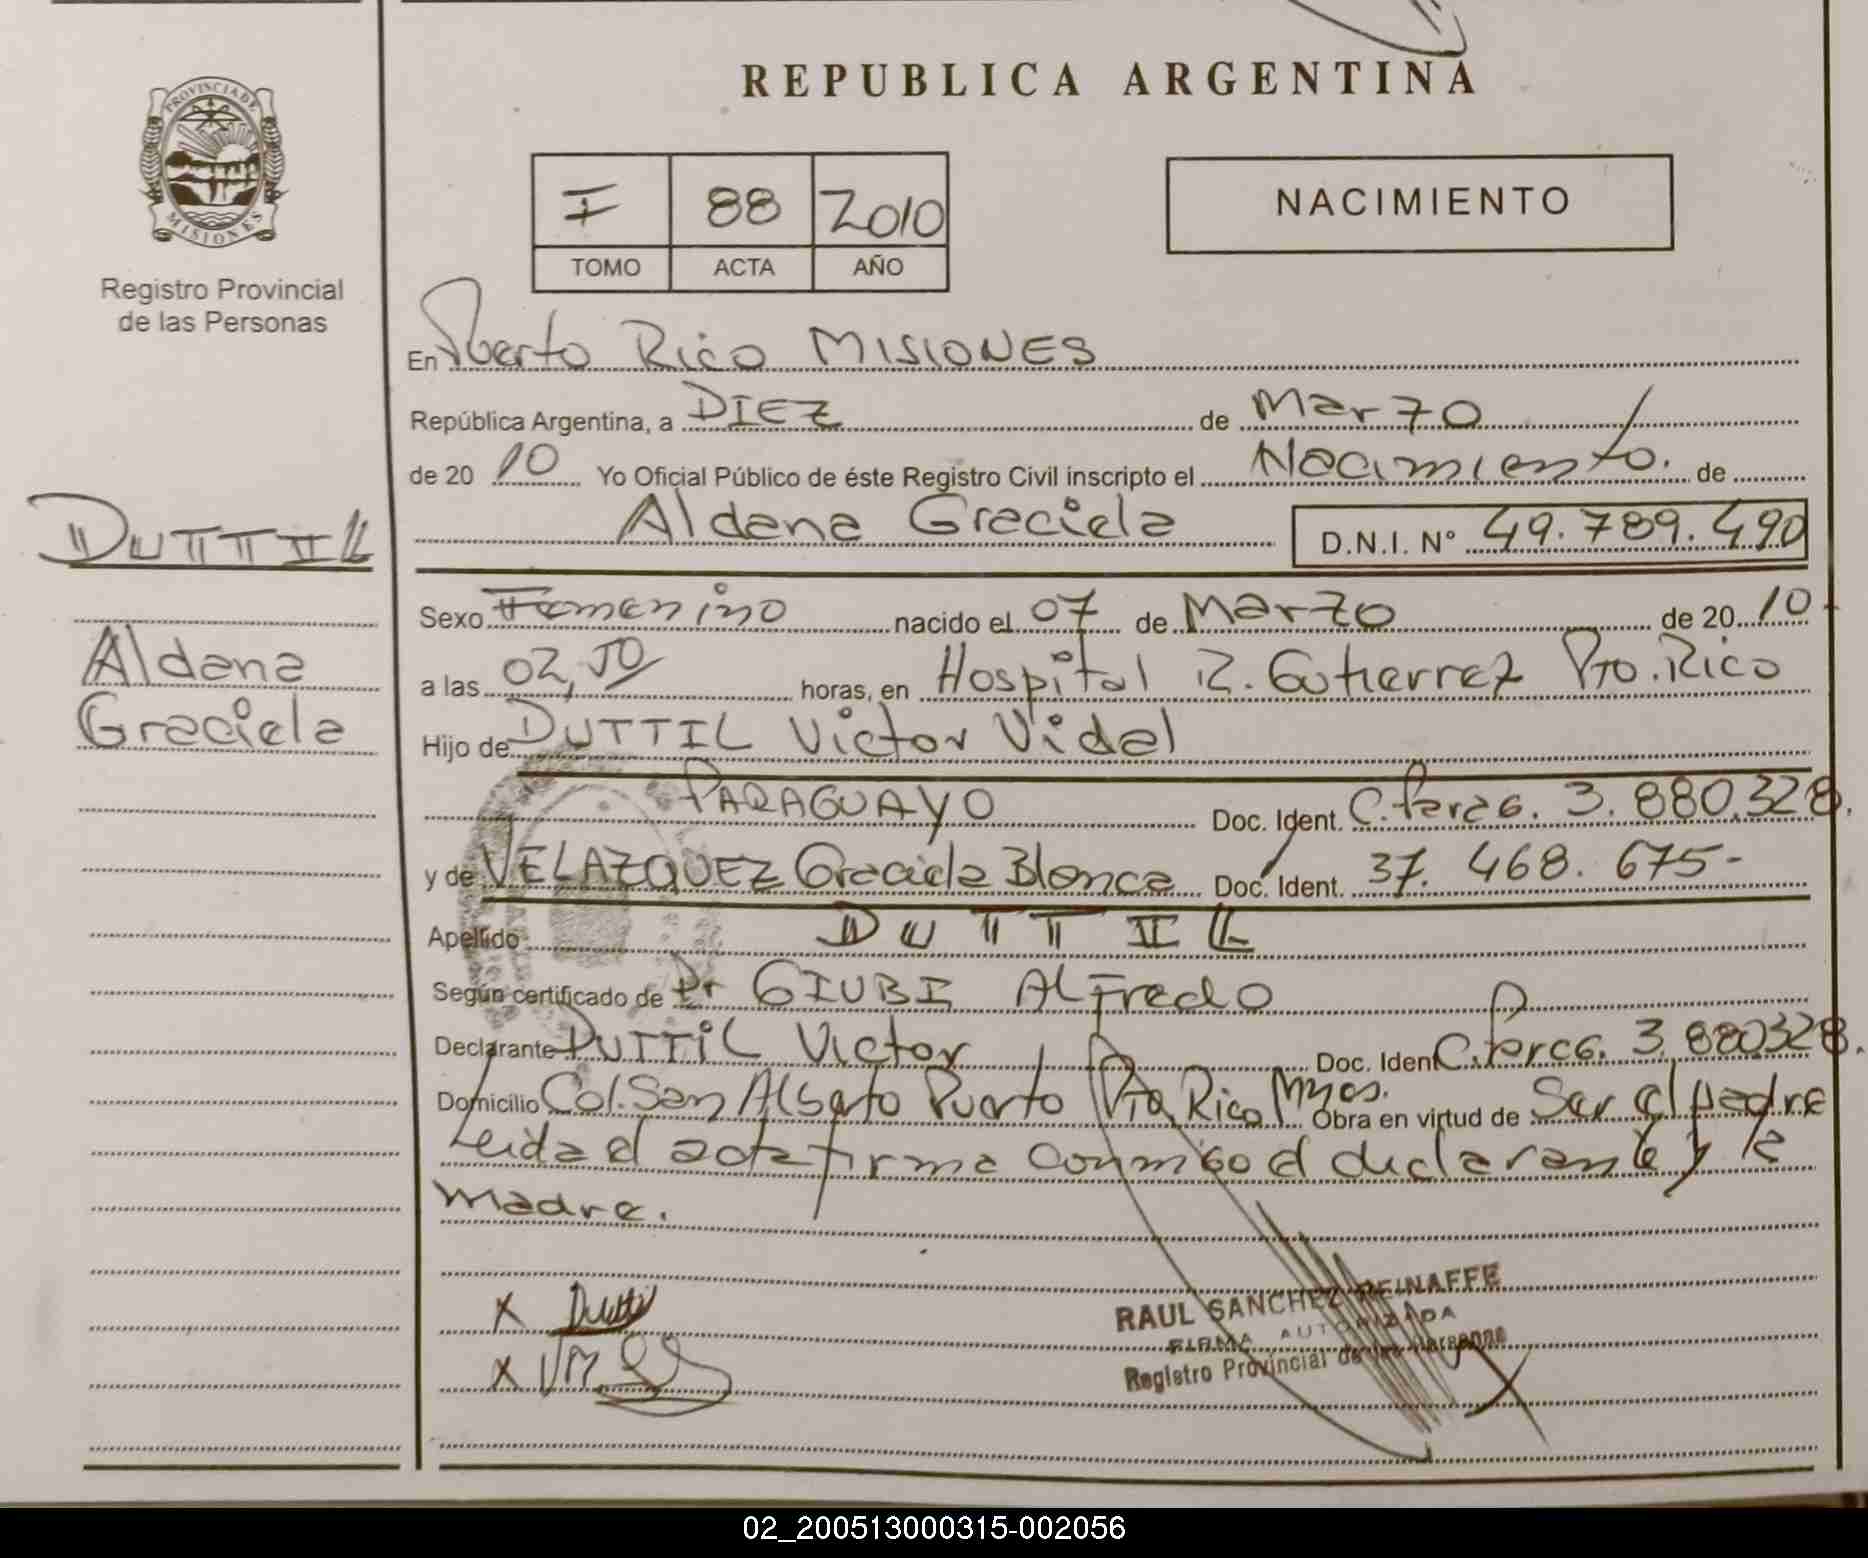 REPUBLICA ARGENTINA
PROVINCIA DE
MISIONES
Registro Provincial
de las Personas
I 88 2010
TOMO ACTA AÑO
NACIMIENTO
En Puerto Rico MISIONES
República Argentina, a DIEZ de Marzo
de 20 10 Yo Oficial Público de éste Registro Civil inscripto el Nacimiento. de
Aldana Graciela D.N.I. N° 49.789.490
DUTTIL
Aldana
Graciela
Sexo Femenino nacido el 07 de Marzo de 20 10
a las 02,50 horas, en Hospital R. Gutierrez Pto. Rico
Hijo de DUTTIL Victor Vidal
PARAGUAYO Doc. Ident. C. Parag. 3.880.328.
y de VELAZQUEZ Graciela Blanca Doc. Ident. 37.468.675-
Apellido DUTTIL
Según certificado de Dr GIUBI Alfredo
Declarante DUTTIL Victor Doc. Ident C. Parag. 3.880328.
Domicilio Col. San Alberto Puerto Pto. Rico Mnes. Obra en virtud de Ser el padre
Leida el acta firma conmigo el declarante y la
madre.
X Duttil
X
RAUL SANCHEZ REINAFFE
FIRMA AUTORIZADA
Registro Provincial de las Personas
02_200513000315-002056